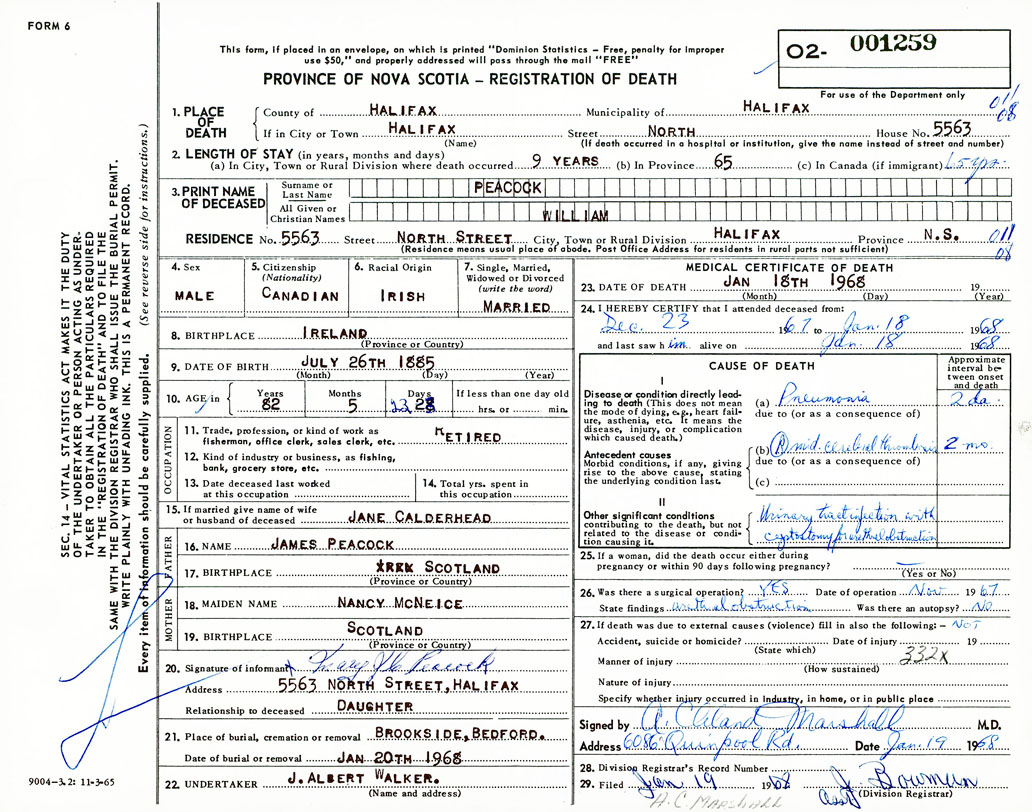 FORM 6
This form, if placed in an envelope, on which is printed "Dominion Statistics – Free, penalty for improper
use $50," and properly addressed will pass through the mail "FREE"
O2- 001259
PROVINCE OF NOVA SCOTIA – REGISTRATION OF DEATH
For use of the Department only
011
08
1. PLACE OF DEATH
County of HALIFAX Municipality of HALIFAX
If in City or Town HALIFAX Street NORTH House No. 5563
(Name) (If death occurred in a hospital or institution, give the name instead of street and number)
2. LENGTH OF STAY (in years, months and days)
(a) In City, Town or Rural Division where death occurred 9 YEARS (b) In Province 65 (c) In Canada (if immigrant) 65 yrs.
3. PRINT NAME OF DECEASED
Surname or Last Name PEACOCK
All Given or Christian Names WILLIAM
RESIDENCE No. 5563 Street NORTH STREET City, Town or Rural Division HALIFAX Province N.S. 011
08
(Residence means usual place of abode. Post Office Address for residents in rural parts not sufficient)
4. Sex
MALE
5. Citizenship
(Nationality)
CANADIAN
6. Racial Origin
IRISH
7. Single, Married,
Widowed or Divorced
(write the word)
MARRIED
8. BIRTHPLACE IRELAND
(Province or Country)
9. DATE OF BIRTH JULY 26TH 1885
(Month) (Day) (Year)
10. AGE in Years 82 Months 5 Days 23 28 If less than one day old
hrs. or min.
OCCUPATION
11. Trade, profession, or kind of work as
fisherman, office clerk, sales clerk, etc. RETIRED
12. Kind of industry or business, as fishing,
bank, grocery store, etc.
13. Date deceased last worked
at this occupation
14. Total yrs. spent in
this occupation
15. If married give name of wife
or husband of deceased JANE CALDERHEAD
FATHER
16. NAME JAMES PEACOCK
17. BIRTHPLACE SCOTLAND
(Province or Country)
MOTHER
18. MAIDEN NAME NANCY MCNEICE
19. BIRTHPLACE SCOTLAND
(Province or Country)
20. Signature of informant x Mary J. Peacock
Address 5563 NORTH STREET, HALIFAX
Relationship to deceased DAUGHTER
21. Place of burial, cremation or removal BROOKSIDE, BEDFORD.
Date of burial or removal JAN 20TH 1968
22. UNDERTAKER J. ALBERT WALKER.
(Name and address)
MEDICAL CERTIFICATE OF DEATH
23. DATE OF DEATH JAN 18TH 1968 19
(Month) (Day) (Year)
24. I HEREBY CERTIFY that I attended deceased from:
Dec. 23 1967 to Jan. 18 1968
and last saw him alive on Jan. 18 1968
CAUSE OF DEATH
Approximate interval between onset and death
I
Disease or condition directly leading to death (This does not mean
the mode of dying, e.g., heart failure, asthenia, etc. It means the
disease, injury, or complication
which caused death.)
(a) Pneumonia 2 da.
due to (or as a consequence of)
Antecedent causes
Morbid conditions, if any, giving
rise to the above cause, stating
the underlying condition last.
(b) R mid. cerebral thrombosis 2 mo.
due to (or as a consequence of)
(c)
II
Other significant conditions
contributing to the death, but not
related to the disease or condition causing it.
Urinary tract infection with
cystostomy for urethral obstruction
25. If a woman, did the death occur either during
pregnancy or within 90 days following pregnancy?
(Yes or No)
26. Was there a surgical operation? YES Date of operation Nov 1967
State findings urethral obstruction Was there an autopsy? NO
27. If death was due to external causes (violence) fill in also the following: – NOT
Accident, suicide or homicide? Date of injury 19
(State which)
332X
Manner of injury
(How sustained)
Nature of injury
Specify whether injury occurred in Industry, in home, or in public place
Signed by A. Cleland Marshall M.D.
Address 6086 Quinpool Rd. Date Jan. 19 1968
28. Division Registrar's Record Number
29. Filed Jan 19 1968 J. Bowmun
Asst (Division Registrar)
A.C. MARSHALL
SEC. 14 – VITAL STATISTICS ACT MAKES IT THE DUTY
OF THE UNDERTAKER OR PERSON ACTING AS UNDERTAKER TO OBTAIN ALL THE PARTICULARS REQUIRED
IN THE "REGISTRATION OF DEATH" AND TO FILE THE
SAME WITH THE DIVISION REGISTRAR WHO SHALL ISSUE THE BURIAL PERMIT.
WRITE PLAINLY WITH UNFADING INK. THIS IS A PERMANENT RECORD.
Every item of information should be carefully supplied. (See reverse side for instructions.)
9004-3.2: 11-3-65